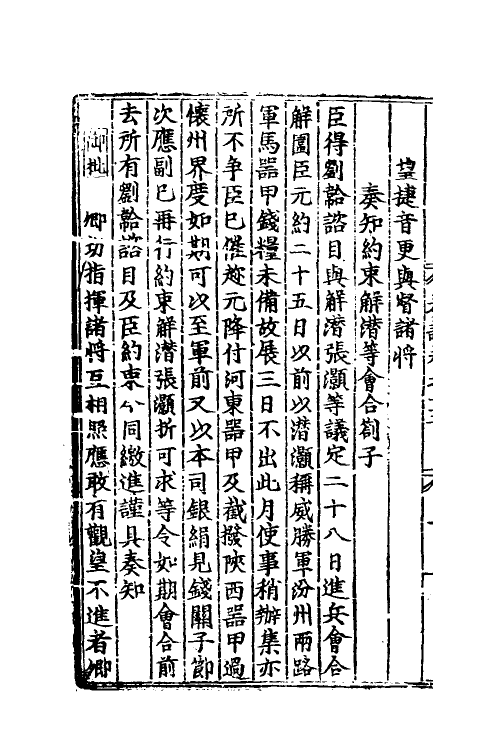 望捷音更與督諸將
奏知約束解潛等會合劄子
臣得劉韐諮目與解潛張灝等議定二十八日進兵會合
解圍臣元約二十五日以前以潛灝稱威勝軍汾州兩路
軍馬器甲錢糧未備故展三日不出此月使事稍辦集亦
所不爭臣已催趂元降付河東器甲及截撥陝西器甲過
懷州界度如期可以至軍前又以本司銀絹見錢關子節
次應副已再行約束解潛張灝折可求等令如期會合前
去所有劉韐諮目及臣約束今同繳進謹具奏知
御批 卿功指揮諸將互相照應敢有觀望不進者卿